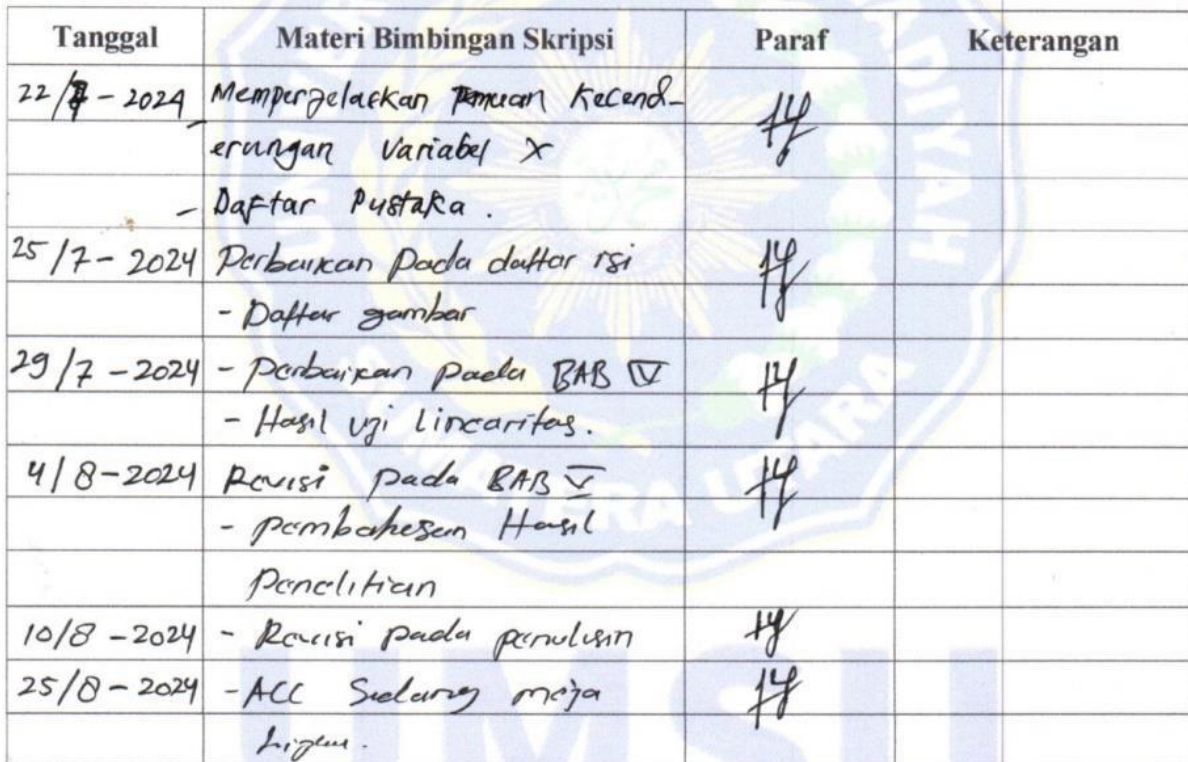 Tanggal Materi Bimbingan Skripsi Paraf Keterangan
22/7-2024 Memperjelaskan Kecend-
erungan Variabel X
- Daftar Pustaka.
25/7-2024 Perbaikan Pada daftar isi
- Daftar gambar
29/7-2024 - Perbaikan Pada BAB IV
- Hasil uji Linearitas.
4/8-2024 Revisi pada BAB V
- pembahasan Hasil
Penelitian
10/8-2024 - Revisi pada penulisan
25/8-2024 - ACC Sidang meja
hijau.
UMSU